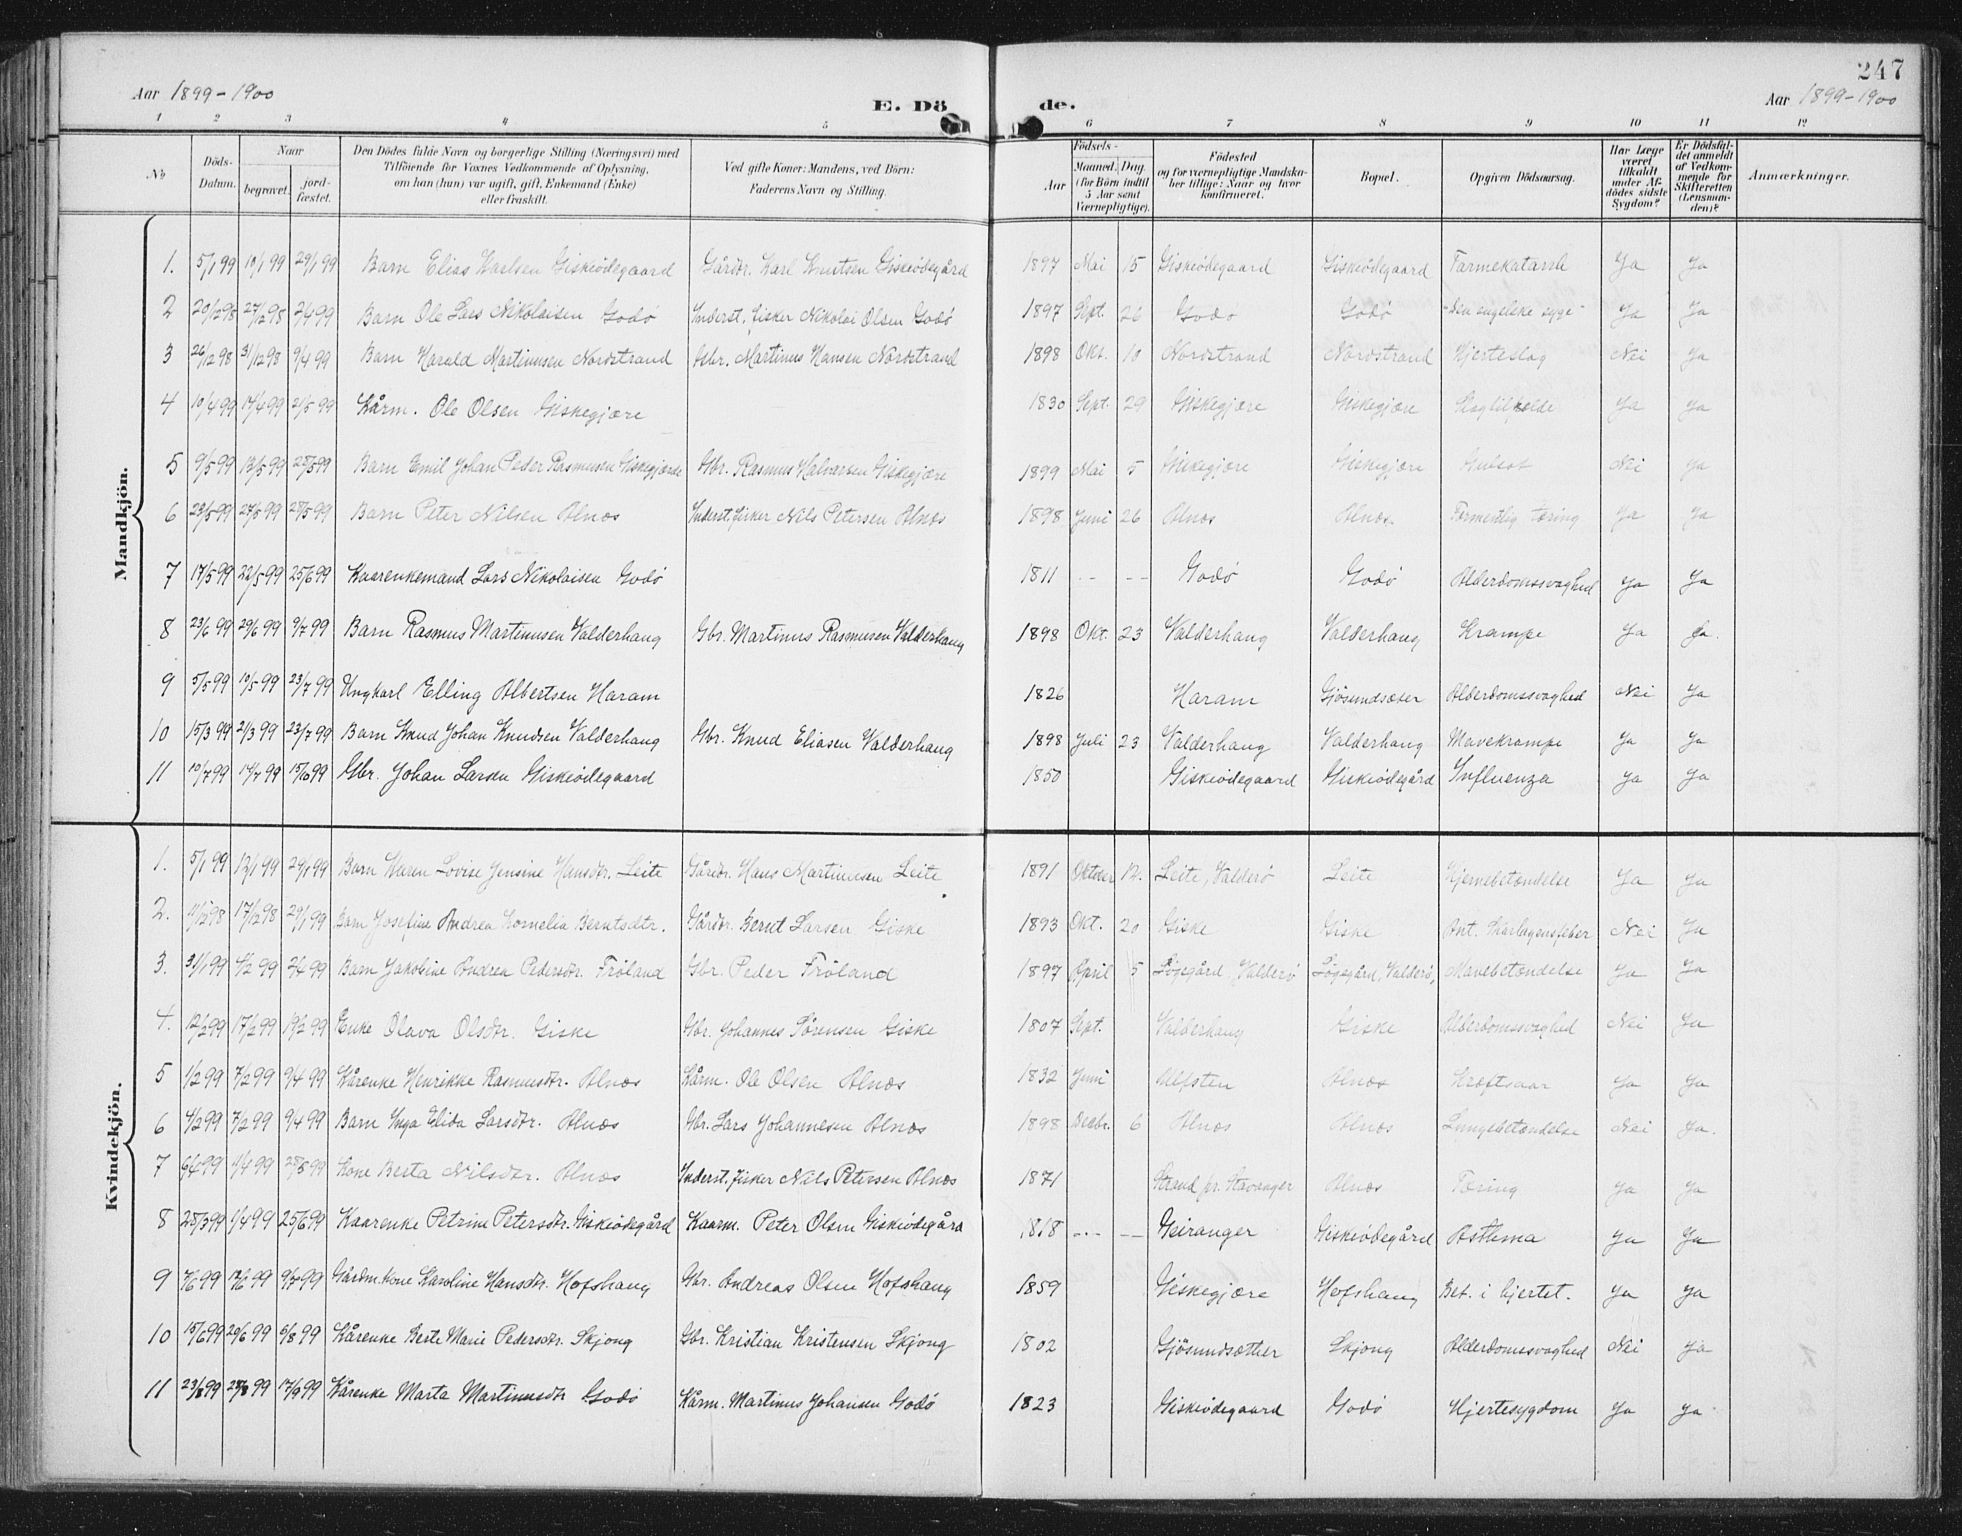 247
Aar 1899-1900 E. Dö de. Aar 1899-1900
1 2 3 4 5 6 7 8 9 10 11 12
No Döds-Datum. Naar begravet. jord-fæstet. Den Dödes fulde Navn og borgerlige Stilling (Næringsvei) med Tilföiende for Voxnes Vedkommende af Oplysning, om han (hun) var ugift, gift, Enkemand (Enke) eller fraskilt. Ved gifte Koner: Mandens, ved Börn: Faderens Navn og Stilling. Födsels- Aar Maaned. Dag. (for Börn indtil 5 Aar samt Værnepligtige). Födested og for værnepligtige Mandskaber tillige: Naar og hvor konfirmeret. Bopæl. Opgiven Dödsaarsag. Har Læge været tilkaldt under Afdödes sidste Sygdom? Er Dödsfaldet anmeldt af Vedkommende for Skifteretten (Lensmanden)? Anmærkninger.
Mandkjön.
1. 5/1 99 10/1 99 29/1 99 Barn Elias Karlsen Giskeödegaard Gårdbr. Karl Knutsen Giskeödegård 1897 Mai 15 Giskeödegaard Giskeödegaard Tarmekatarrh Ja Ja
2 20/12 98 27/12 98 2/4 99 Barn Ole Lars Nikolaisen Godø Inderst, fisker Nikolai Olsen Godø 1897 Sept. 26 Godø Godø "Den engelske syge" Ja Ja
3 26/12 98 31/12 98 9/4 99 Barn Harald Martinusen Nordstrand Gbr. Martinus Hansen Nordstrand 1898 Okt. 10 Nordstrand Nordstrand Hjerteslag Nei Ja
4 10/4 99 14/4 99 21/5 99 Kårm. Ole Olsen Giskegjære 1830 Sept. 29 Giskegjære Giskegjære Slagtilfælde Ja Ja
5 9/5 99 13/5 99 28/5 99 Barn Emil Johan Peder Rasmusen Giskegjærde Gbr. Rasmus Halvarsen Giskegjære 1899 Mai 5 Giskegjære Giskegjære Gulsot Nei Ja
6 23/5 99 27/5 99 28/5 99 Barn Peter Nilsen Alnæs Inderst, fisker Nils Petersen Alnæs 1898 Juni 26 Alnæs Alnæs Formentlig tæring Ja Ja
7 17/5 99 22/5 99 25/6 99 Kaarenkemand Lars Nikolaisen Godø 1811 -- -- Godø Godø Alderdomssvaghed Ja Ja
8 23/6 99 29/6 99 9/7 99 Barn Rasmus Martinusen Valderhaug Gbr. Martinus Rasmusen Valderhaug 1898 Okt. 23 Valderhaug Valderhaug Krampe Ja Ja.
9 5/5 99 10/5 99 23/7 99 Ungkarl Elling Albertsen Haram 1826 Haram Gjøsundsæter Alderdomssvaghed Nei Ja
10 15/3 99 21/3 99 23/7 99 Barn Knud Johan Knudsen Valderhaug Gbr. Knud Eliasen Valderhaug 1898 Juli 23 Valderhaug Valderhaug Mavekrampe Ja Ja
11 10/7 99 14/7 99 15/10 99 Gbr. Johan Larsen Giskeödegaard 1850 Giskeödegaard Giskeödegård Influenza Ja Ja
Kvindekjön.
1. 5/1 99 12/1 99 29/1 99 Barn Karen Lovise Jensine Hansdtr. Leite Gårdbr. Hans Martinusen Leite 1891 Oktober 12. Leite, Valderø Leite Hjernebetændelse Ja Ja
2. 11/12 98 17/12 98 29/1 99 Barn Josefine Andrea Kornelia Berntsdtr. Gårdbr. Bernt Larsen Giske 1893 Okt. 20 Giske Giske Ant. Skarlagensfeber Nei Ja
3. 31/1 99 4/2 99 2/4 99 Barn Jakobine Andrea Pedersdtr. Frøland Gbr. Peder Frøland 1897 April 5 Løgegård, Valderø Løgegård, Valderø, Mavebetændelse Ja Ja
4. 12/2 99 17/2 99 19/2 99 Enke Olava Olsdtr. Giske Gbr. Johannes Sørensen Giske 1807 Sept. Valderhaug Giske Alderdomssvaghed Nei Ja
5 1/2 99 7/2 99 9/4 99 Kårenke Henrikke Rasmusdtr. Alnæs Kårm. Ole Olsen Alnæs 1832 Juni Ulfsten Alnæs Kræftsaar Ja Ja
6 4/2 99 7/2 99 9/4 99 Barn Inga Elida Larsdtr. Alnæs Gbr. Lars Johannesen Alnæs 1898 Decbr. 6 Alnæs Alnæs Lungebetændelse Nei Ja.
7 6/4 99 11/4 99 28/5 99 Kone Berta Nilsdtr. Alnæs Inderst, fisker Nils Petersen Alnæs 1871 Strand pr. Stavanger Alnæs Tæring Ja Ja
8 28/3 99 1/4 99 25/6 99 Kaarenke Petrine Petersdtr. Giskeödegård Kaarm. Peter Olsen Giskeödegård 1818 --- -- Geiranger Giskeödegård Asthma Ja Ja
9 7/6 99 12/6 99 9/7 99 Gårdm. kone Karoline Hansdtr. Hofshaug Gbr. Andreas Olsen Hofshaug 1859 Giskegjære Hofshaug Bet. i hjertet. Ja Ja
10 15/6 99 20/6 99 6/8 99 Kårenke Berte Marie Pedersdtr. Skjong Gbr. Kristian Kristensen Skjong 1802 Gjösundsæther Skjong Alderdomssvaghed Nei Ja
11 23/8 99 28/8 99 17/9 99 Kårenke Marta Martinusdtr Godø Kårm. Martinus Johansen Godø 1823 Giskeödegaard Godø Hjertesygdom Ja Ja